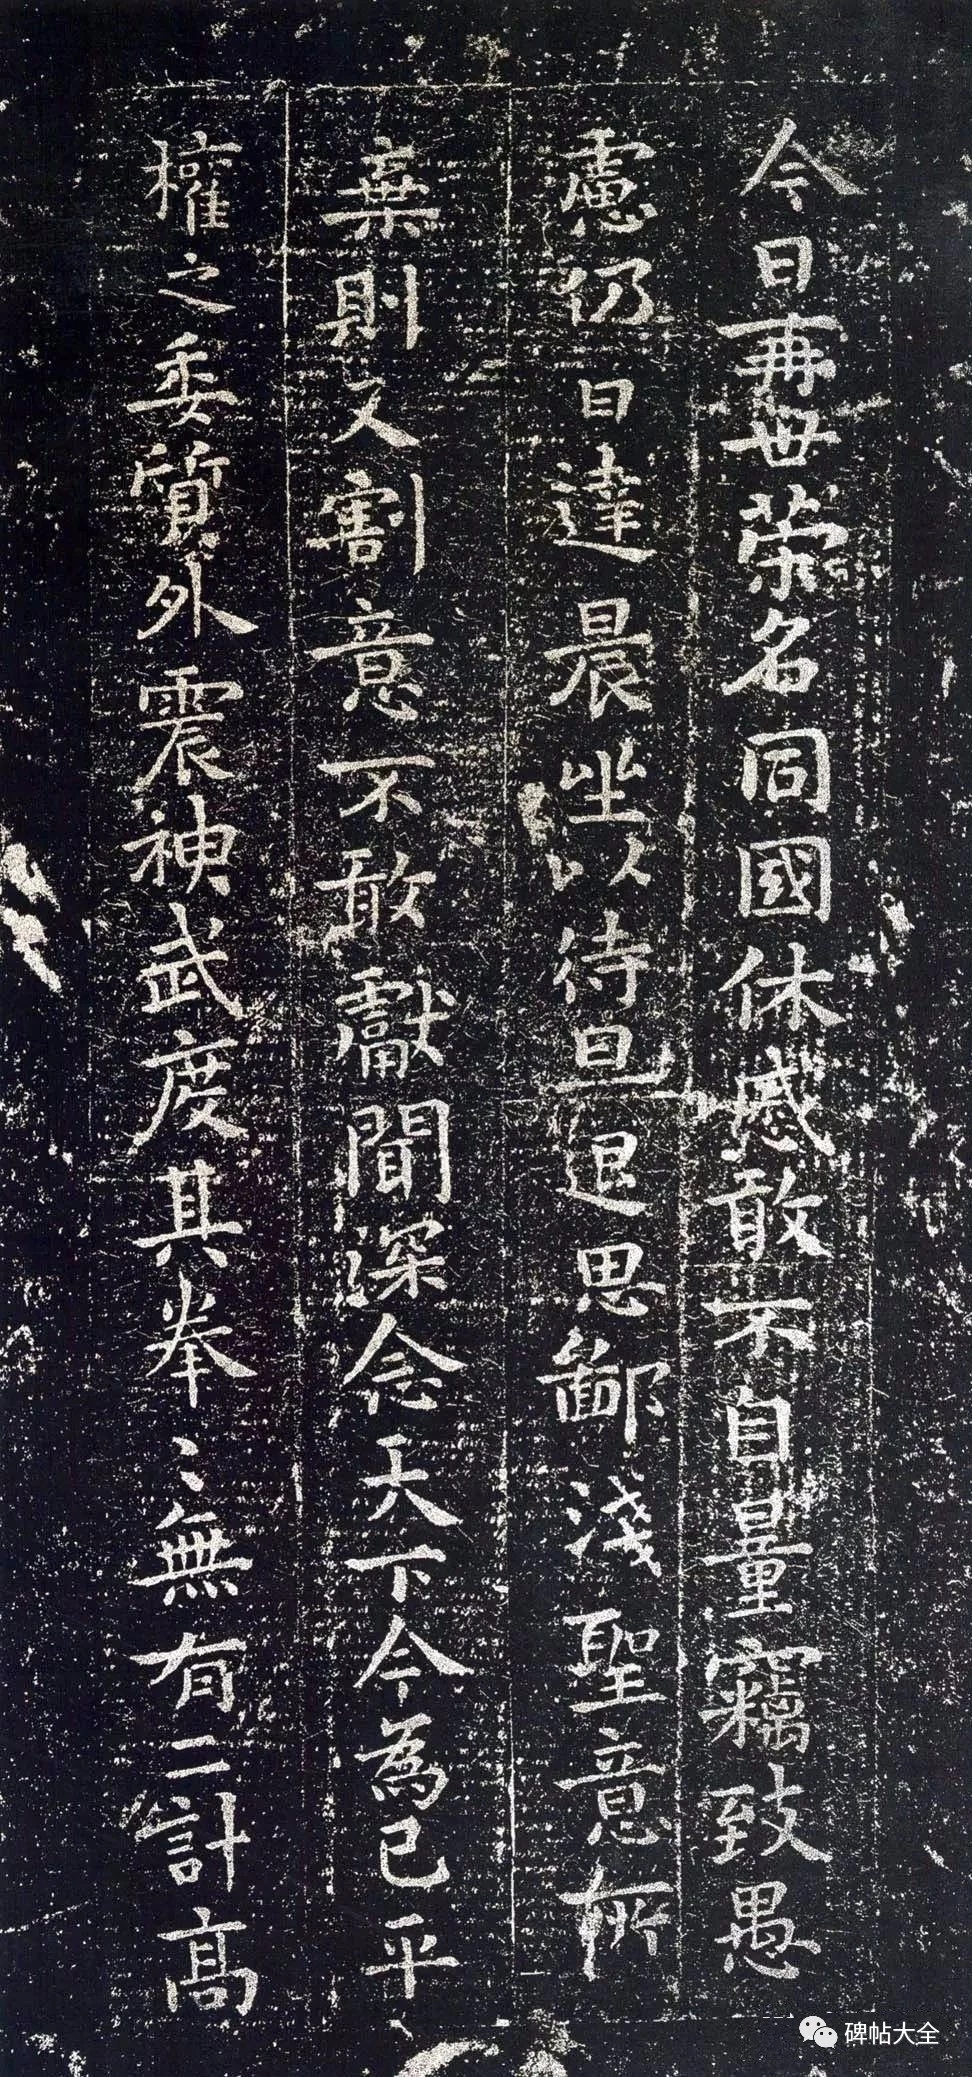 今日再世荣名同國休慼敢不自量竊致愚
慮仍日達晨坐以待旦退思鄙淺聖意所
棄則又割意不敢獻聞深念天下今為已平
權之委質外震神武度其拳〻無有二計高
碑帖大全